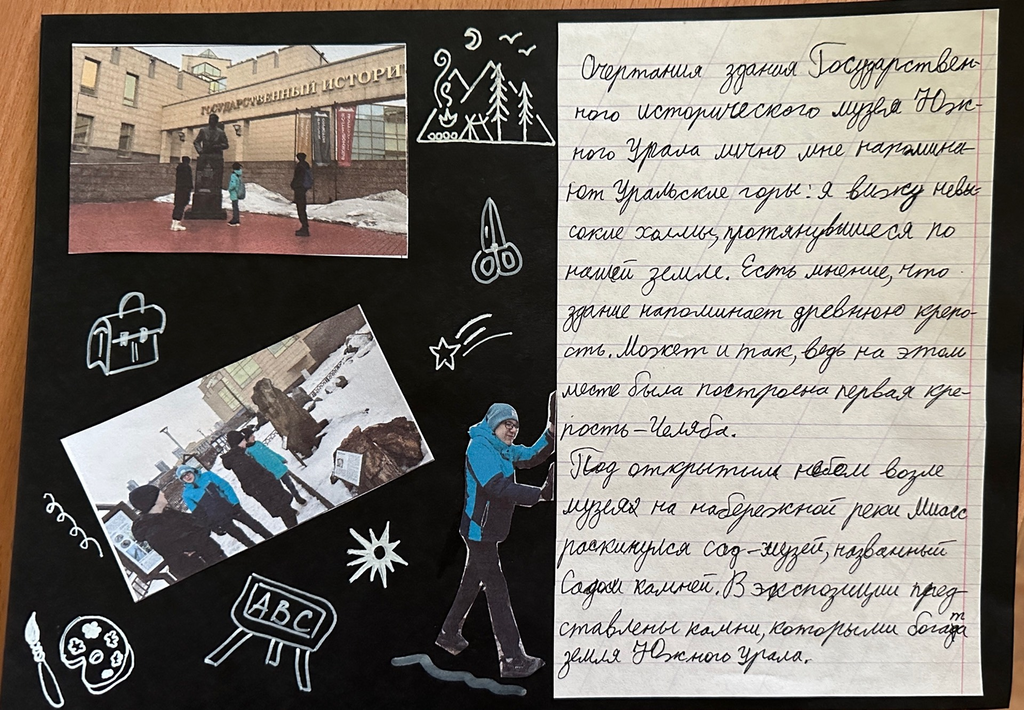 ГОСУДАРСТВЕННЫЙ ИСТОРИ
ABC
Очертания здания Государствен-
ного исторического музея Юж-
ного Урала лично мне напомина-
ют Уральские горы: я вижу невы-
сокие холмы, протянувшиеся по
нашей земле. Есть мнение, что
здание напоминает древнюю крепо-
сть. Может и так, ведь на этом
месте была построена первая кре-
пость-Челяба.
Под открытым небом возле
музея на набережной реки Миасс
раскинулся сад-музей, названный
Садом камней. В экспозиции пред-
ставлены камни, которыми богата
земля Южного Урала.